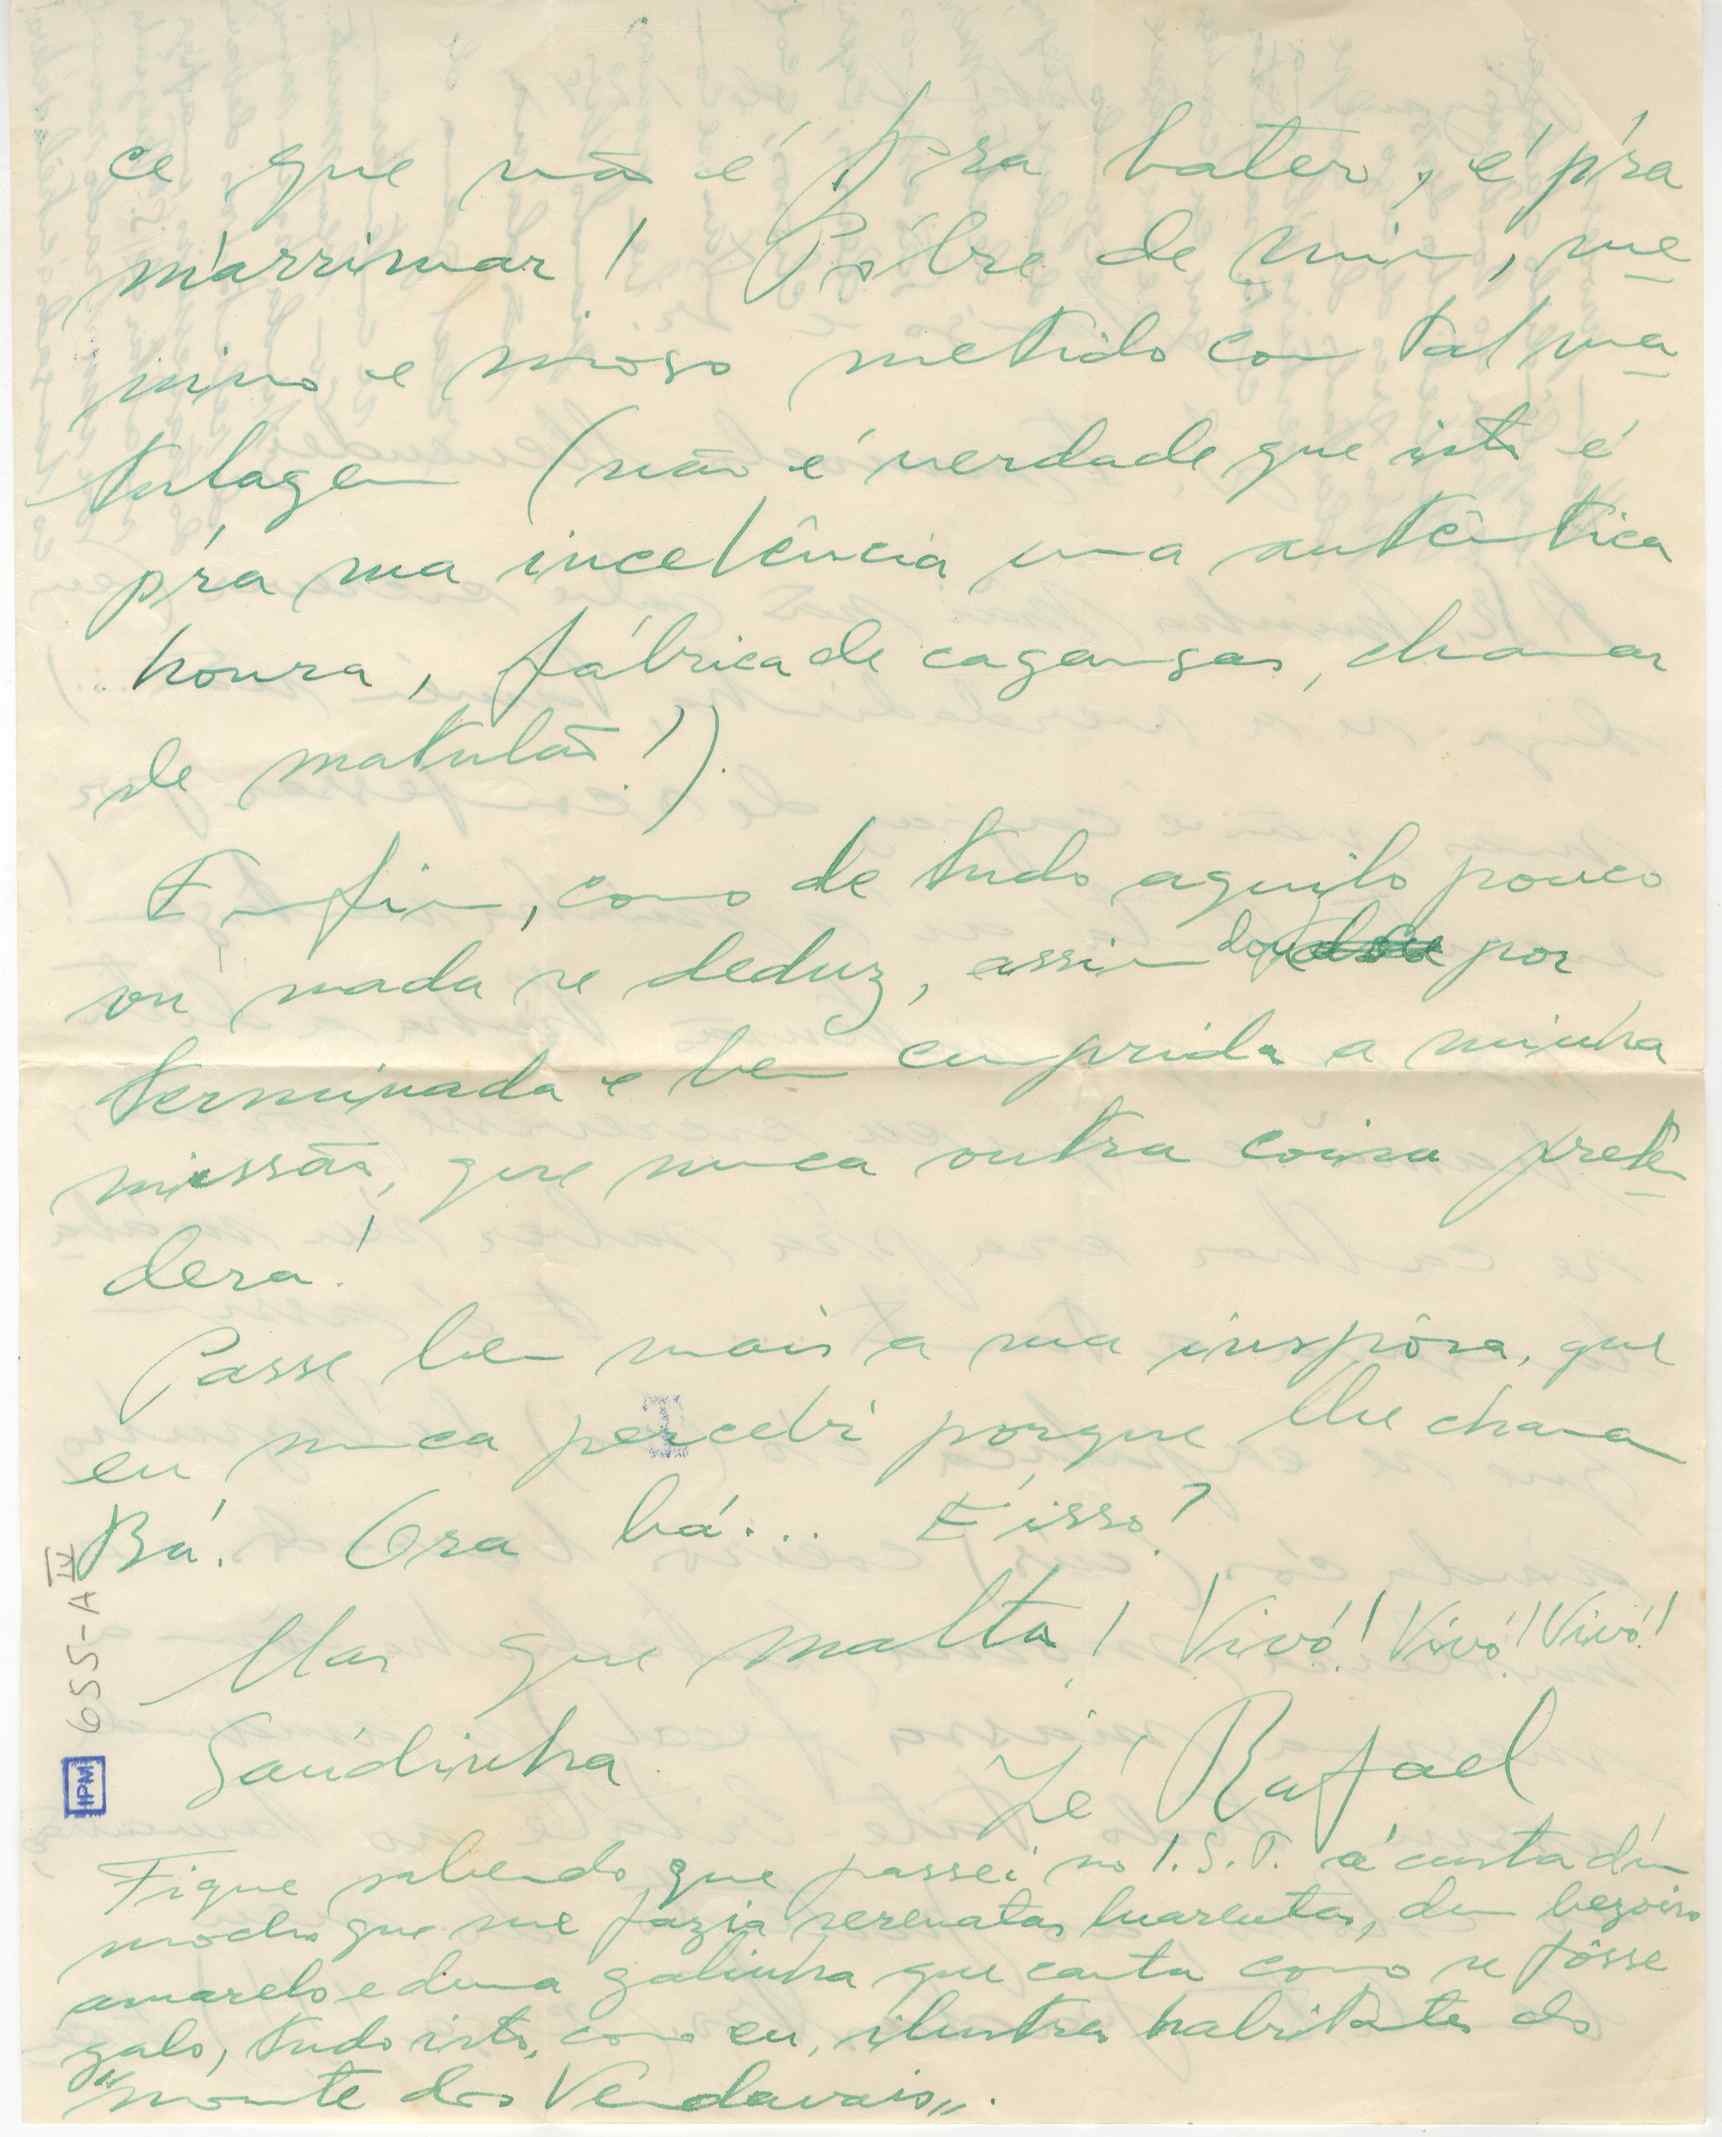 ce que não é p'ra bater, é p'ra
m'arrimar! Pobre de mim, me-
nino e moço metido com tal ma-
tulagem (não é verdade que isto é
p'ra sua incelência uma autêntica
honra, fábrica de caganças, chamar
de matulão!).
Enfim, como de tudo aquilo pouco
ou nada se deduz, assim dou por
terminada e bem cumprida a minha
missão, que nunca outra coisa preten-
dera!
Passe bem mais a sua inspôsa, que
eu nunca percebi porque lhe chama
Bá. Ora bá... É isso?
Mas que malta! Vivó! Vivó! Vivó!
Saúdinha
Zé Rafael
Fique sabendo que passei no I.S.T. á custa dum
mocho que me fazia serenatas luarentas, dum bezoiro
amarelo e duma galinha que canta como se fôsse
galo, tudo isto, como eu, ilustres habitantes do
"monte dos Vendavais".
655-A IV
IPM